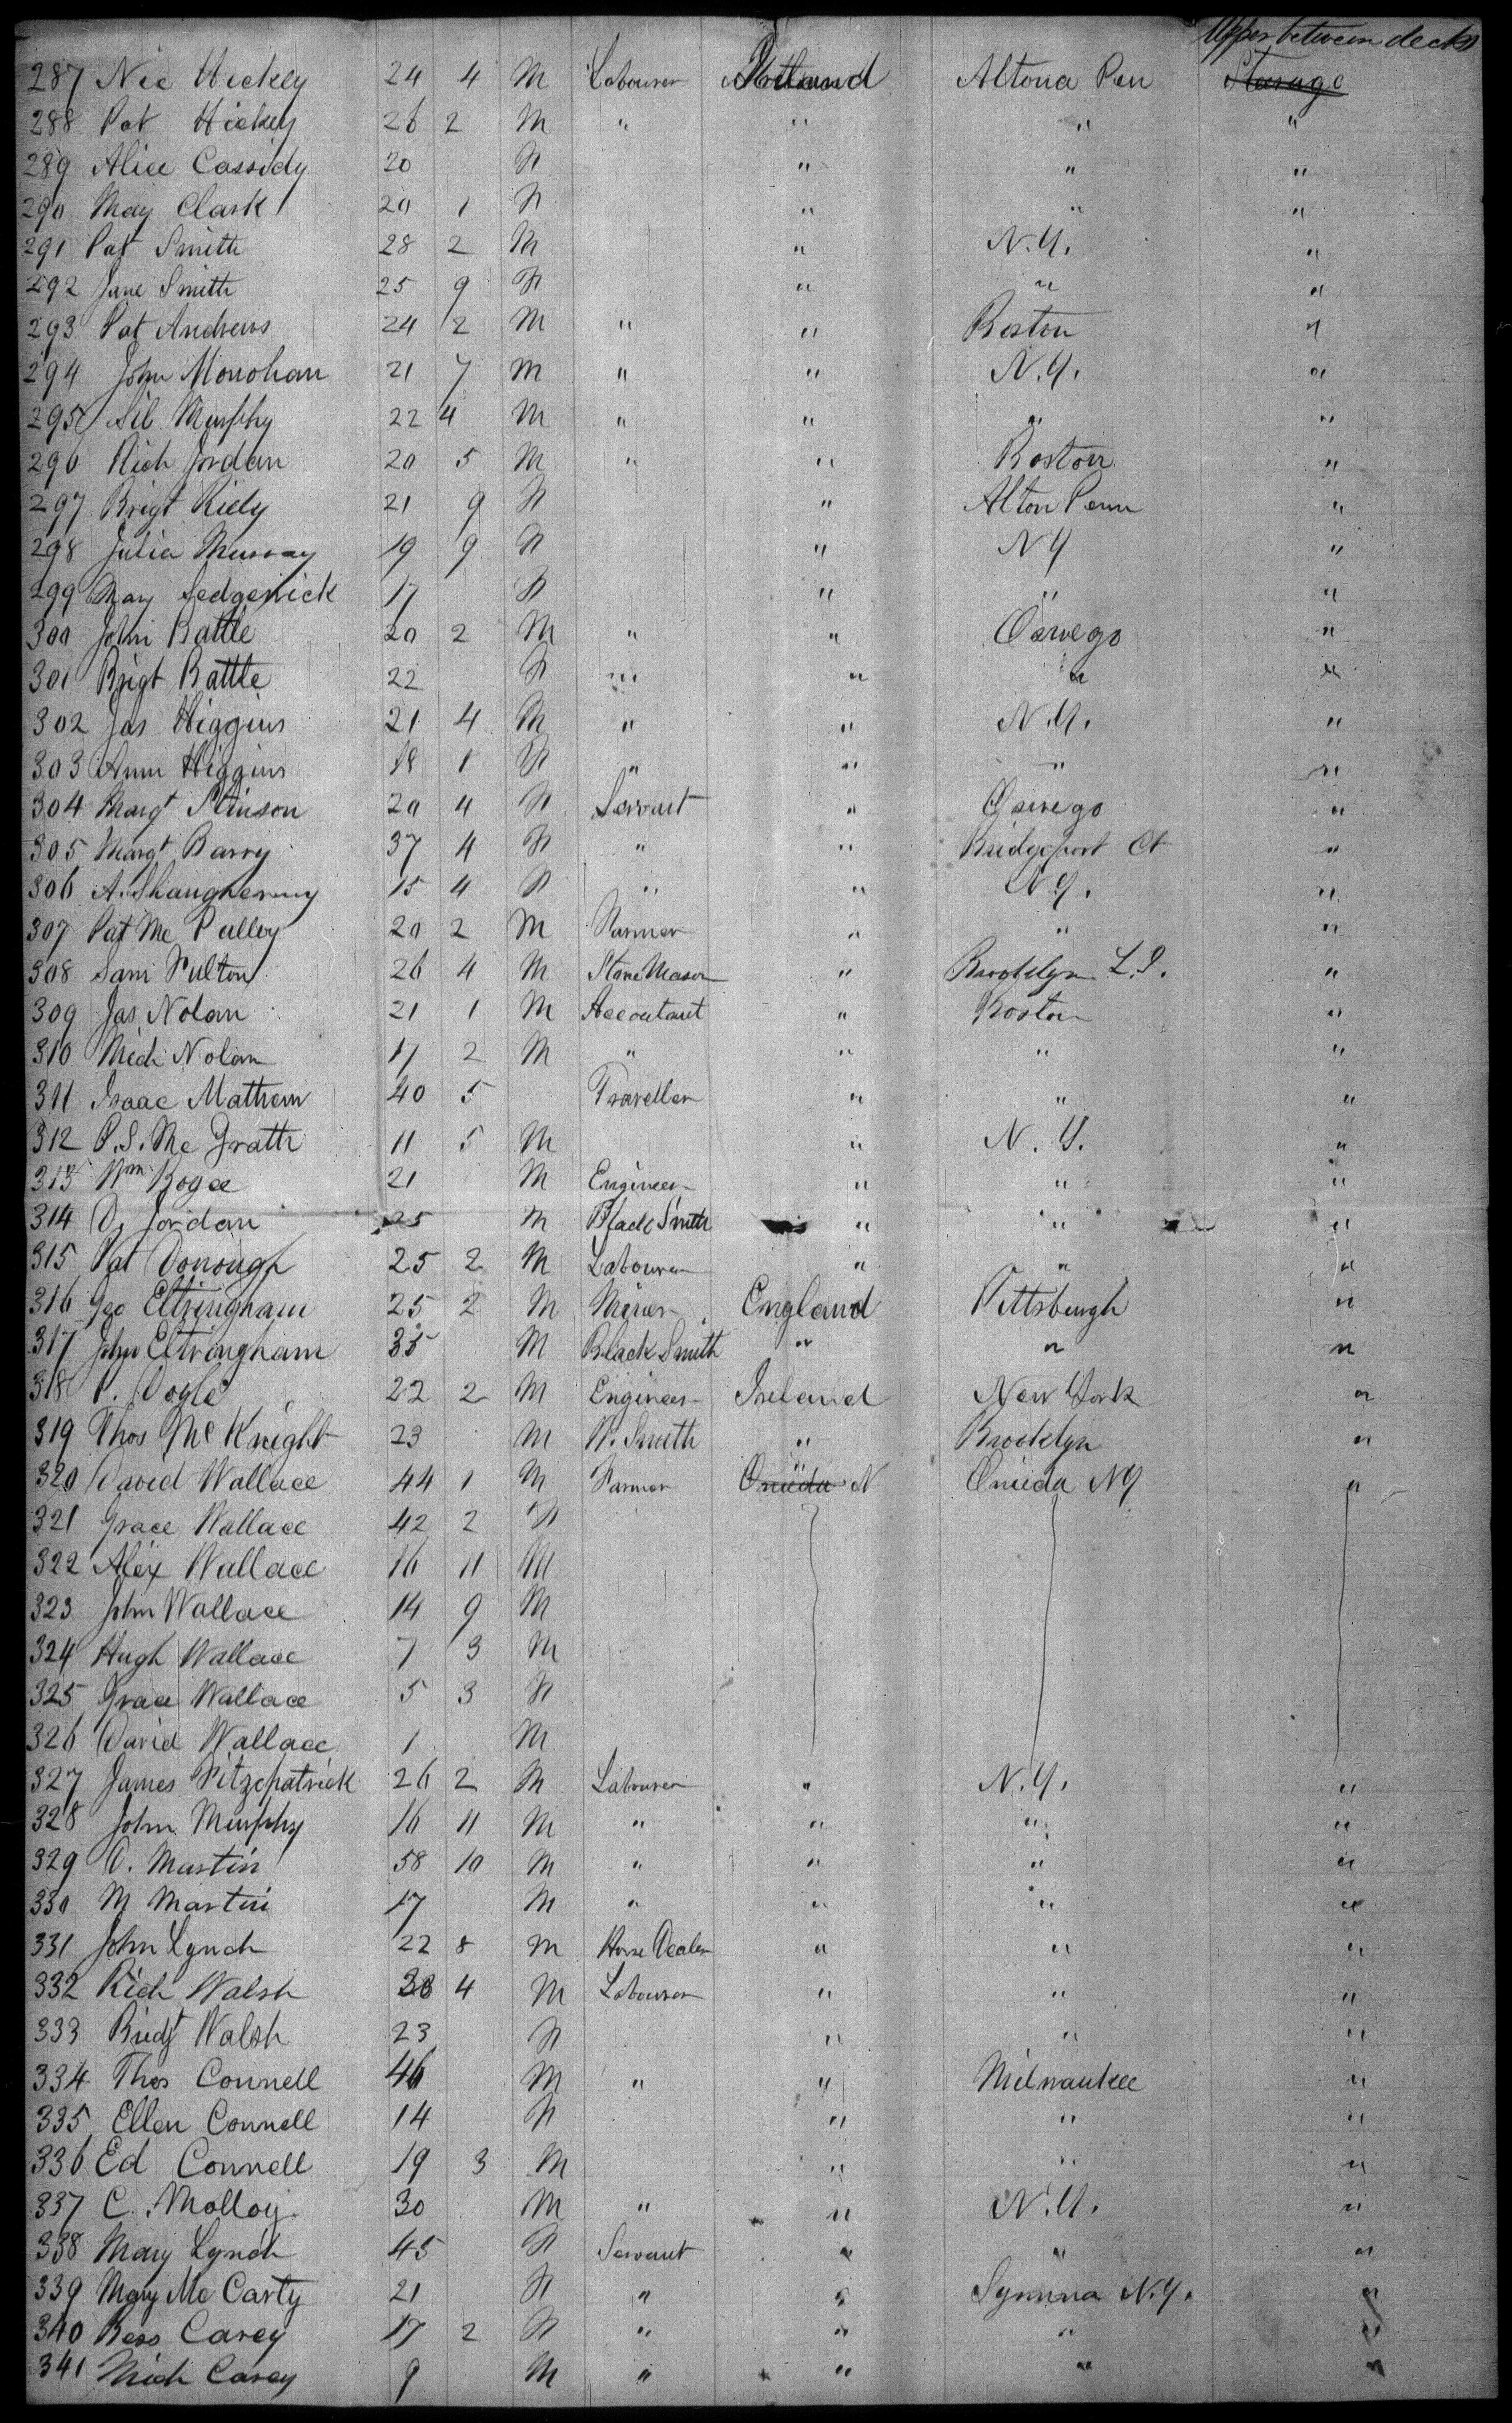 Upper between decks
287 Nic Hickey 24 4 M Labourer Ireland Altona Pen Steerage
288 Pat Hickey 26 2 M " " " "
289 Alice Cassidy 20 F " " "
290 May Clark 20 1 F " " "
291 Pat Smith 28 2 M " N.Y. "
292 Jane Smith 25 9 F " " "
293 Pat Andrews 24 2 M " " Boston "
294 John Monohan 21 7 M " " N.Y. "
295 Sil Murphy 22 4 M " " " "
296 Rich Jordan 20 5 M " " Boston "
297 Brigt Riely 21 9 F " Alton Penn "
298 Julia Murray 19 9 F " N Y "
299 Mary Sedgerick 17 F " " "
300 John Battle 20 2 M " " Oswego "
301 Brigt Battle 22 F " " " "
302 Jas Higgins 21 4 M " " N.Y. "
303 Ann Higgins 18 1 F " " " "
304 Margt Stinson 20 4 F Servant " Oswego "
305 Margt Barry 37 4 F " " Bridgeport Ct "
306 A. Shaughenny 15 4 F " " N.Y. "
307 Pat Mc Pulley 20 2 M Farmer " " "
308 Sam Fulton 26 4 M Stone Mason " Brooklyn L.I. "
309 Jas Nolan 21 1 M Accoutant " Boston "
310 Mich Nolan 17 2 M " " " "
311 Isaac Mathew 40 5 Traveller " " "
312 P.S. Mc Grath 11 5 M " N.Y. "
313 Wm Boyce 21 M Engineer " " "
314 D. Jordan 25 M Black Smith " " "
315 Pat Donough 25 2 M Labourer " " "
316 Geo Eltringham 25 2 M Miner England Pittsburgh "
317 John Eltringham 35 M Black Smith " " "
318 P. Doyle 22 2 M Engineer Ireland New York "
319 Thos Mc Knight 23 M W. Smith " Brooklyn "
320 David Wallace 44 1 M Farmer " Oneida N Oneida NY "
321 Grace Wallace 42 2 F
322 Alex Wallace 16 11 M
323 John Wallace 14 9 M
324 Hugh Wallace 7 3 M
325 Grace Wallace 5 3 F
326 David Wallace 1 M
327 James Fitzpatrick 26 2 M Labourer " N.Y. "
328 John Murphy 16 11 M " " " "
329 D. Martin 58 10 M " " " "
330 M Martin 17 M " " " "
331 John Lynch 22 8 M Horse Dealer " " "
332 Rich Walsh 4 M Labourer " " "
333 Bridgt Walsh 23 F " " "
334 Thos Connell 46 M " " Milwaukee "
335 Ellen Connell 14 F " " "
336 Ed Connell 19 3 M " " "
337 C. Molloy 30 M " " N.Y. "
338 Mary Lynch 45 F Servant " " "
339 Mary Mc Carty 21 F " " N.Y. "
340 Bess Carey 17 2 F " " " "
341 Mich Carey 9 M " " " "